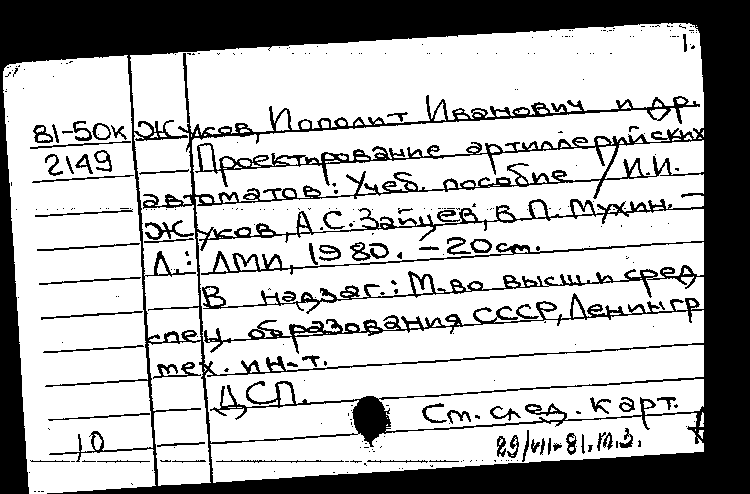 1.
81-50к Жуков, Иополит Иванович и др.
2149 Проектирование артиллерийских
автоматов: Учеб. пособие / И.И.
Жуков, А.С. Зайцев, В.П. Мухин. –
Л.: ЛМИ, 1980. – 20 см.
В надзаг.: М-во высш. и сред
спец. образования СССР, Ленингр
мех. ин-т.
ДСП.
См. след. карт.
10 29/VII-81. т.з.